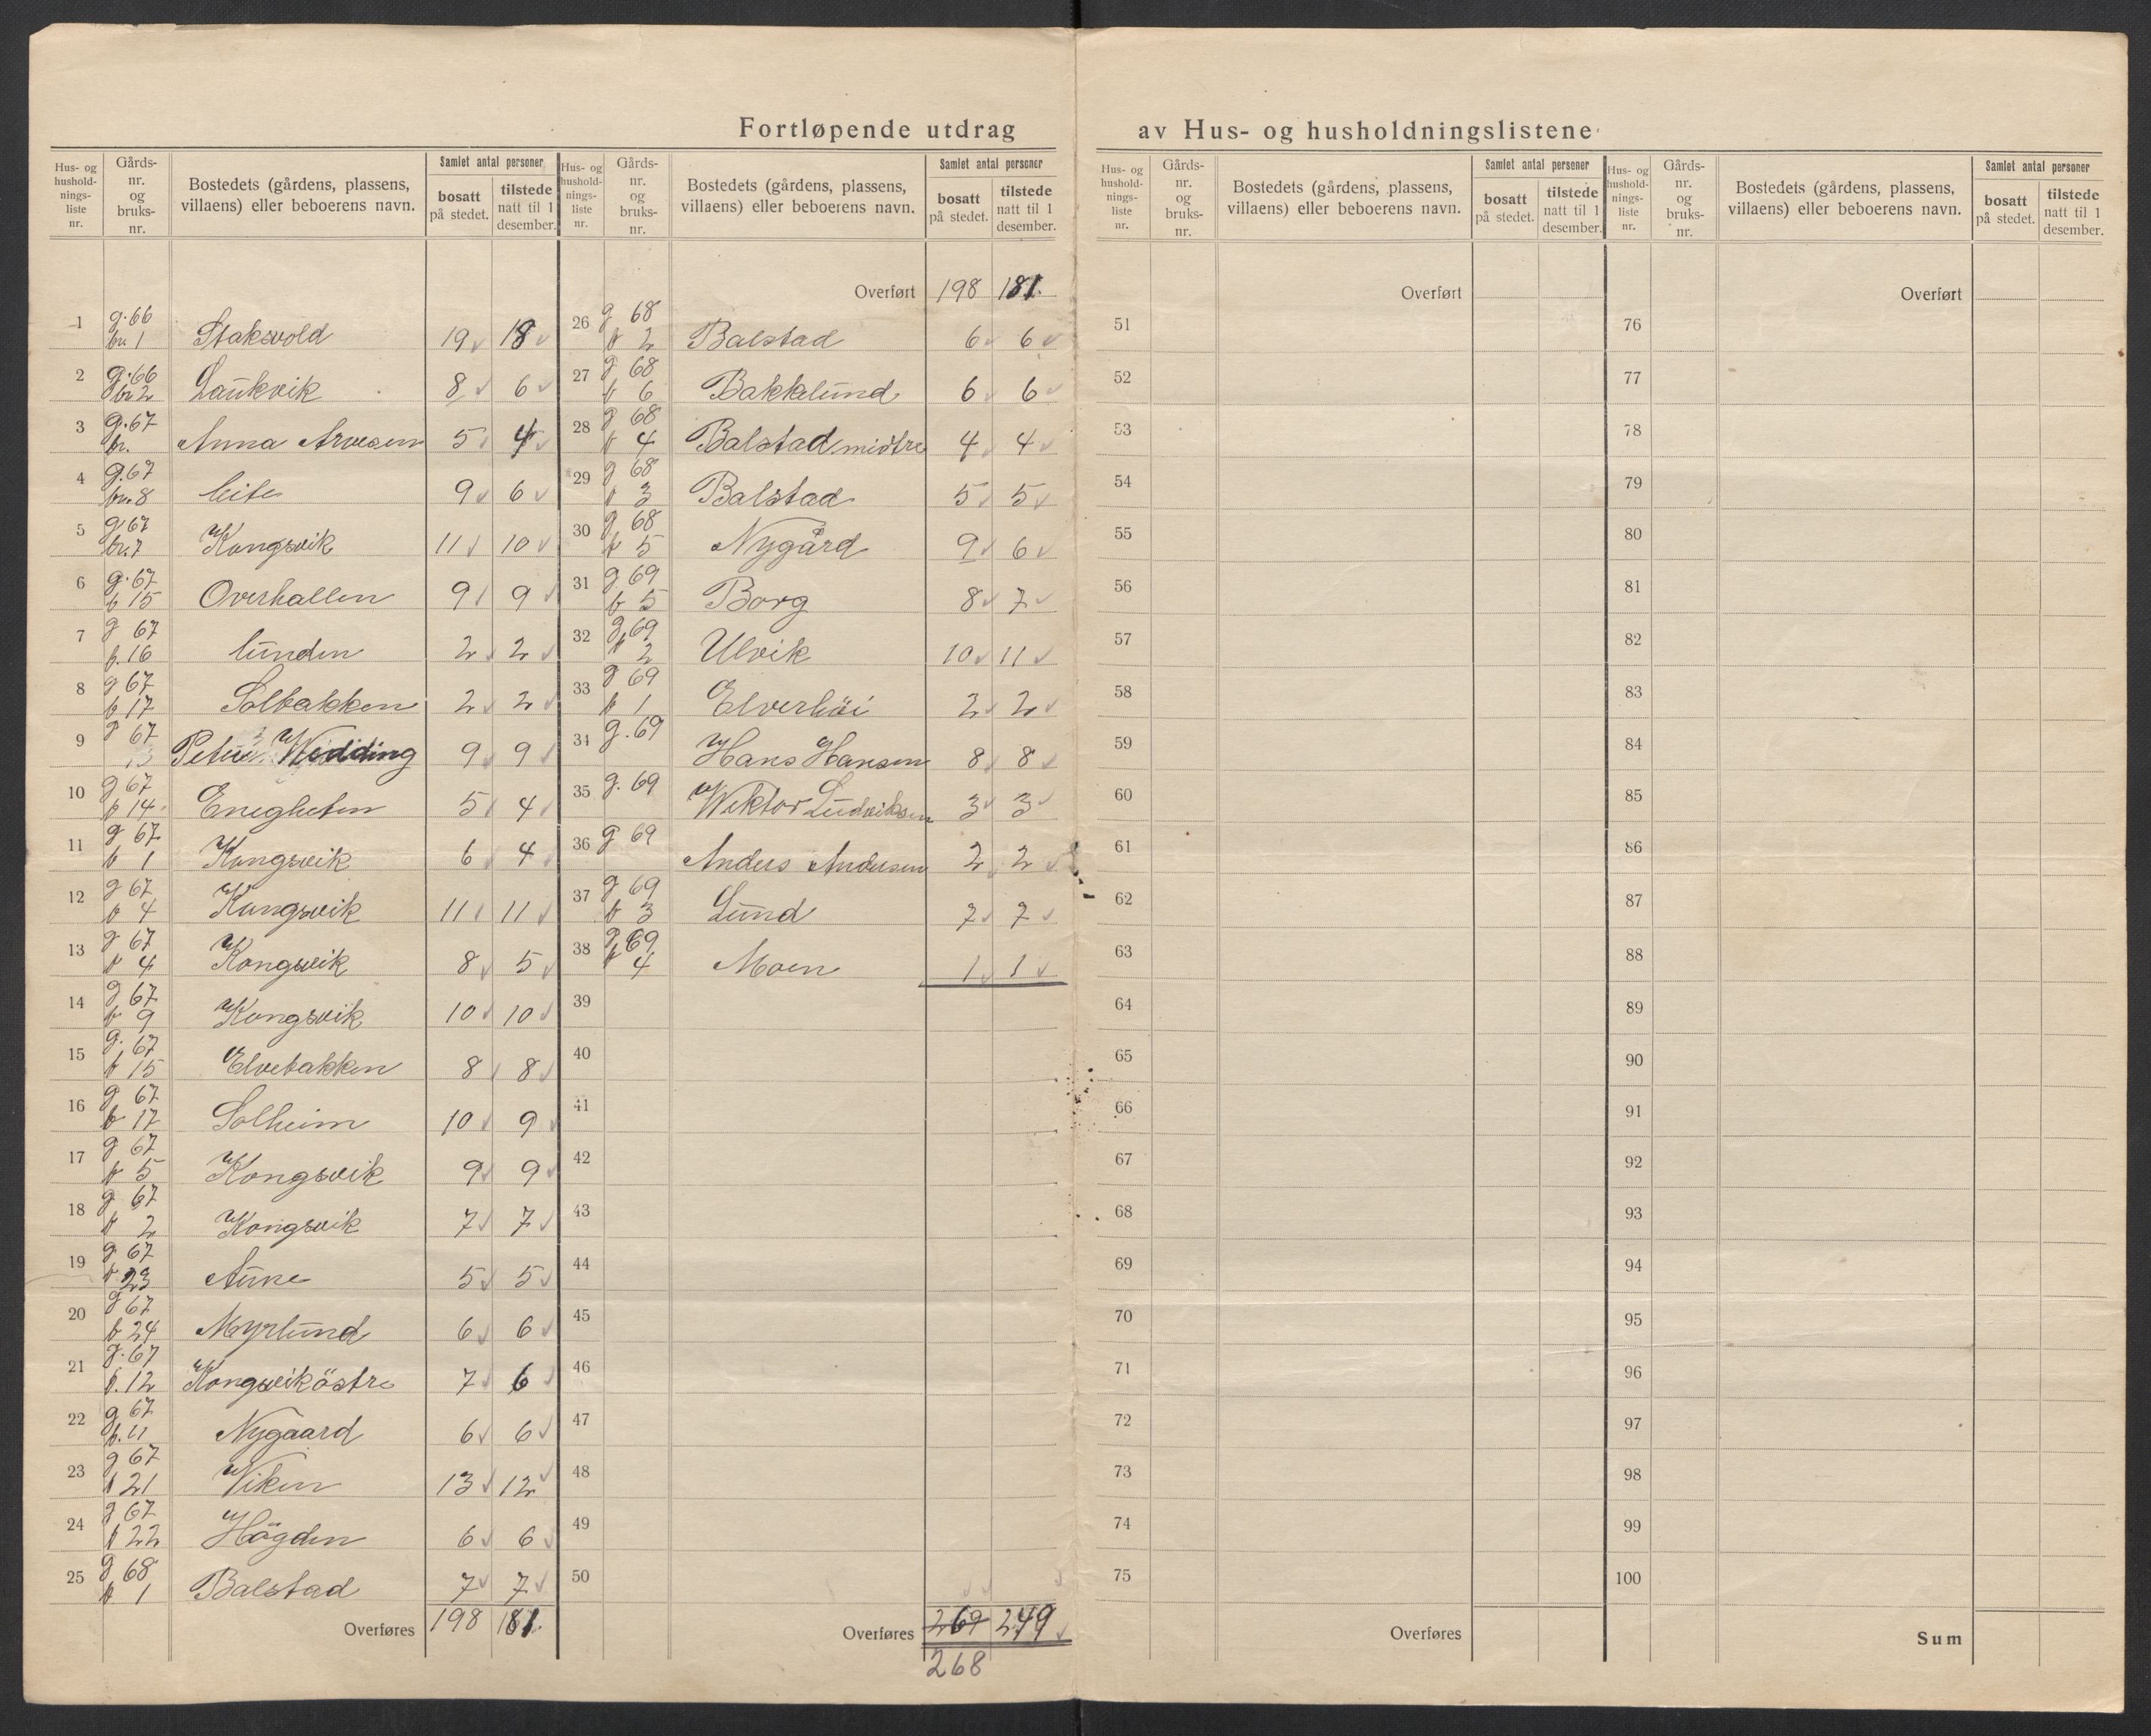 Fortløpende utdrag av Hus- og husholdningslistene
Hus- og hushold-nings-liste nr. Gårds-nr. og bruks-nr. Bostedets (gårdens, plassens, villaens) eller beboerens navn. Samlet antal personer bosatt på stedet. tilstede natt til 1 desember.
1 g. 66 br. 1 Staksvold 19 18
2 g. 66 br. 2 Laukvik 8 6
3 g. 67 br. Anna Arvesen 5 4
4 g. 67 br. 8 Leite 9 6
5 g 67 br. 7 Kongsvik 11 10
6 g. 67 b 15 Overhallen 9 9
7 g 67 b. 16 Lunden 2 2
8 g 67 b 17 Solbakken 2 2
9 g 67 Wedding 9 9
10 g 67 b 14 Enigheten 5 4
11 g 67 b 1 Kongsvik 6 4
12 g 67 b 4 Kongsvik 11 11
13 g 67 b 4 Kongsvik 8 5
14 g 67 b 9 Kongsvik 10 10
15 g. 67 b 15 Elvebakken 8 8
16 g 67 b 17 Solheim 10 9
17 g 67 b 5 Kongsvik 9 9
18 g 67 b 2 Kongsvik 7 7
19 g 67 b 23 Aune 5 5
20 g 67 b 24 Myrlund 6 6
21 g. 67 b. 12 Kongsvik östre 7 6
22 g 67 b. 11 Nygaard 6 6
23 g 67 b 21 Viken 13 12
24 g 67 b 22 Högden 6 6
25 g 68 b 1 Balstad 7 7
Overføres 198 181.
Hus- og hushold-nings-liste nr. Gårds-nr. og bruks-nr. Bostedets (gårdens, plassens, villaens) eller beboerens navn. Samlet antal personer bosatt på stedet. tilstede natt til 1 desember.
Overført 198 181.
26 g 68 b 2 Balstad 6 6
27 g 68 b 6 Bakklund 6 6
28 g 68 b 4 Balstad midtre 4 4
29 g 68 b 3 Balstad 5 5
30 g 68 b 5 Nygård 9 6
31 g 69 b 5 Borg 8 7
32 g 69 b 2 Ulvik 10 11
33 g 69 b 1 Elverhöi 2 2
34 g. 69 Hans Hansen 8 8
35 g. 69 Wiktor Ludviksen 3 3
36 g 69 Anders Andersen 2 2
37 g 69 b 3 Lund 7 7
38 g 69 b 4 Moen 1 1
39
40
41
42
43
44
45
46
47
48
49
50
Overføres 269 249
268
Hus- og hushold-nings-liste nr. Gårds-nr. og bruks-nr. Bostedets (gårdens, plassens, villaens) eller beboerens navn. Samlet antal personer bosatt på stedet. tilstede natt til 1 desember.
Overført
51
52
53
54
55
56
57
58
59
60
61
62
63
64
65
66
67
68
69
70
71
72
73
74
75
Overføres
Hus- og hushold-nings-liste nr. Gårds-nr. og bruks-nr. Bostedets (gårdens, plassens, villaens) eller beboerens navn. Samlet antal personer bosatt på stedet. tilstede natt til 1 desember.
Overført
76
77
78
79
80
81
82
83
84
85
86
87
88
89
90
91
92
93
94
95
96
97
98
99
100
Sum